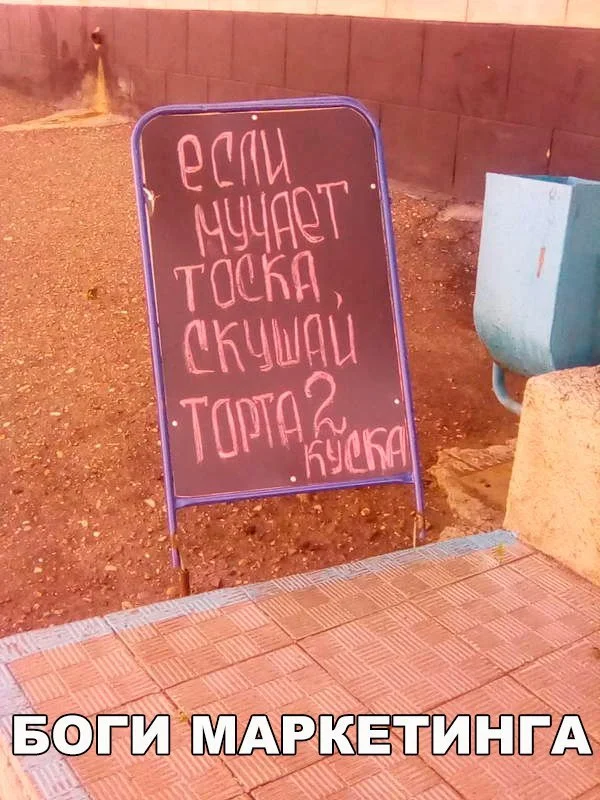 если
мучает
тоска,
скушай
торта 2
куска
БОГИ МАРКЕТИНГА